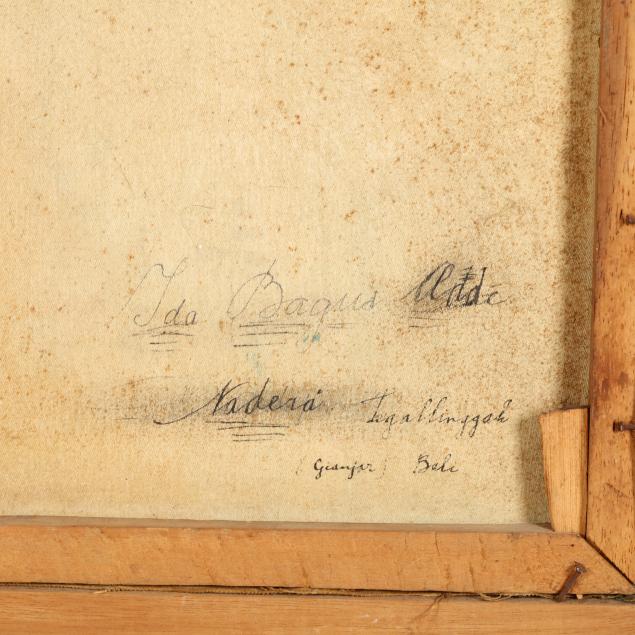 Ida Bagus Made
Nadera Tegallinggah
(Gianjar) Bali